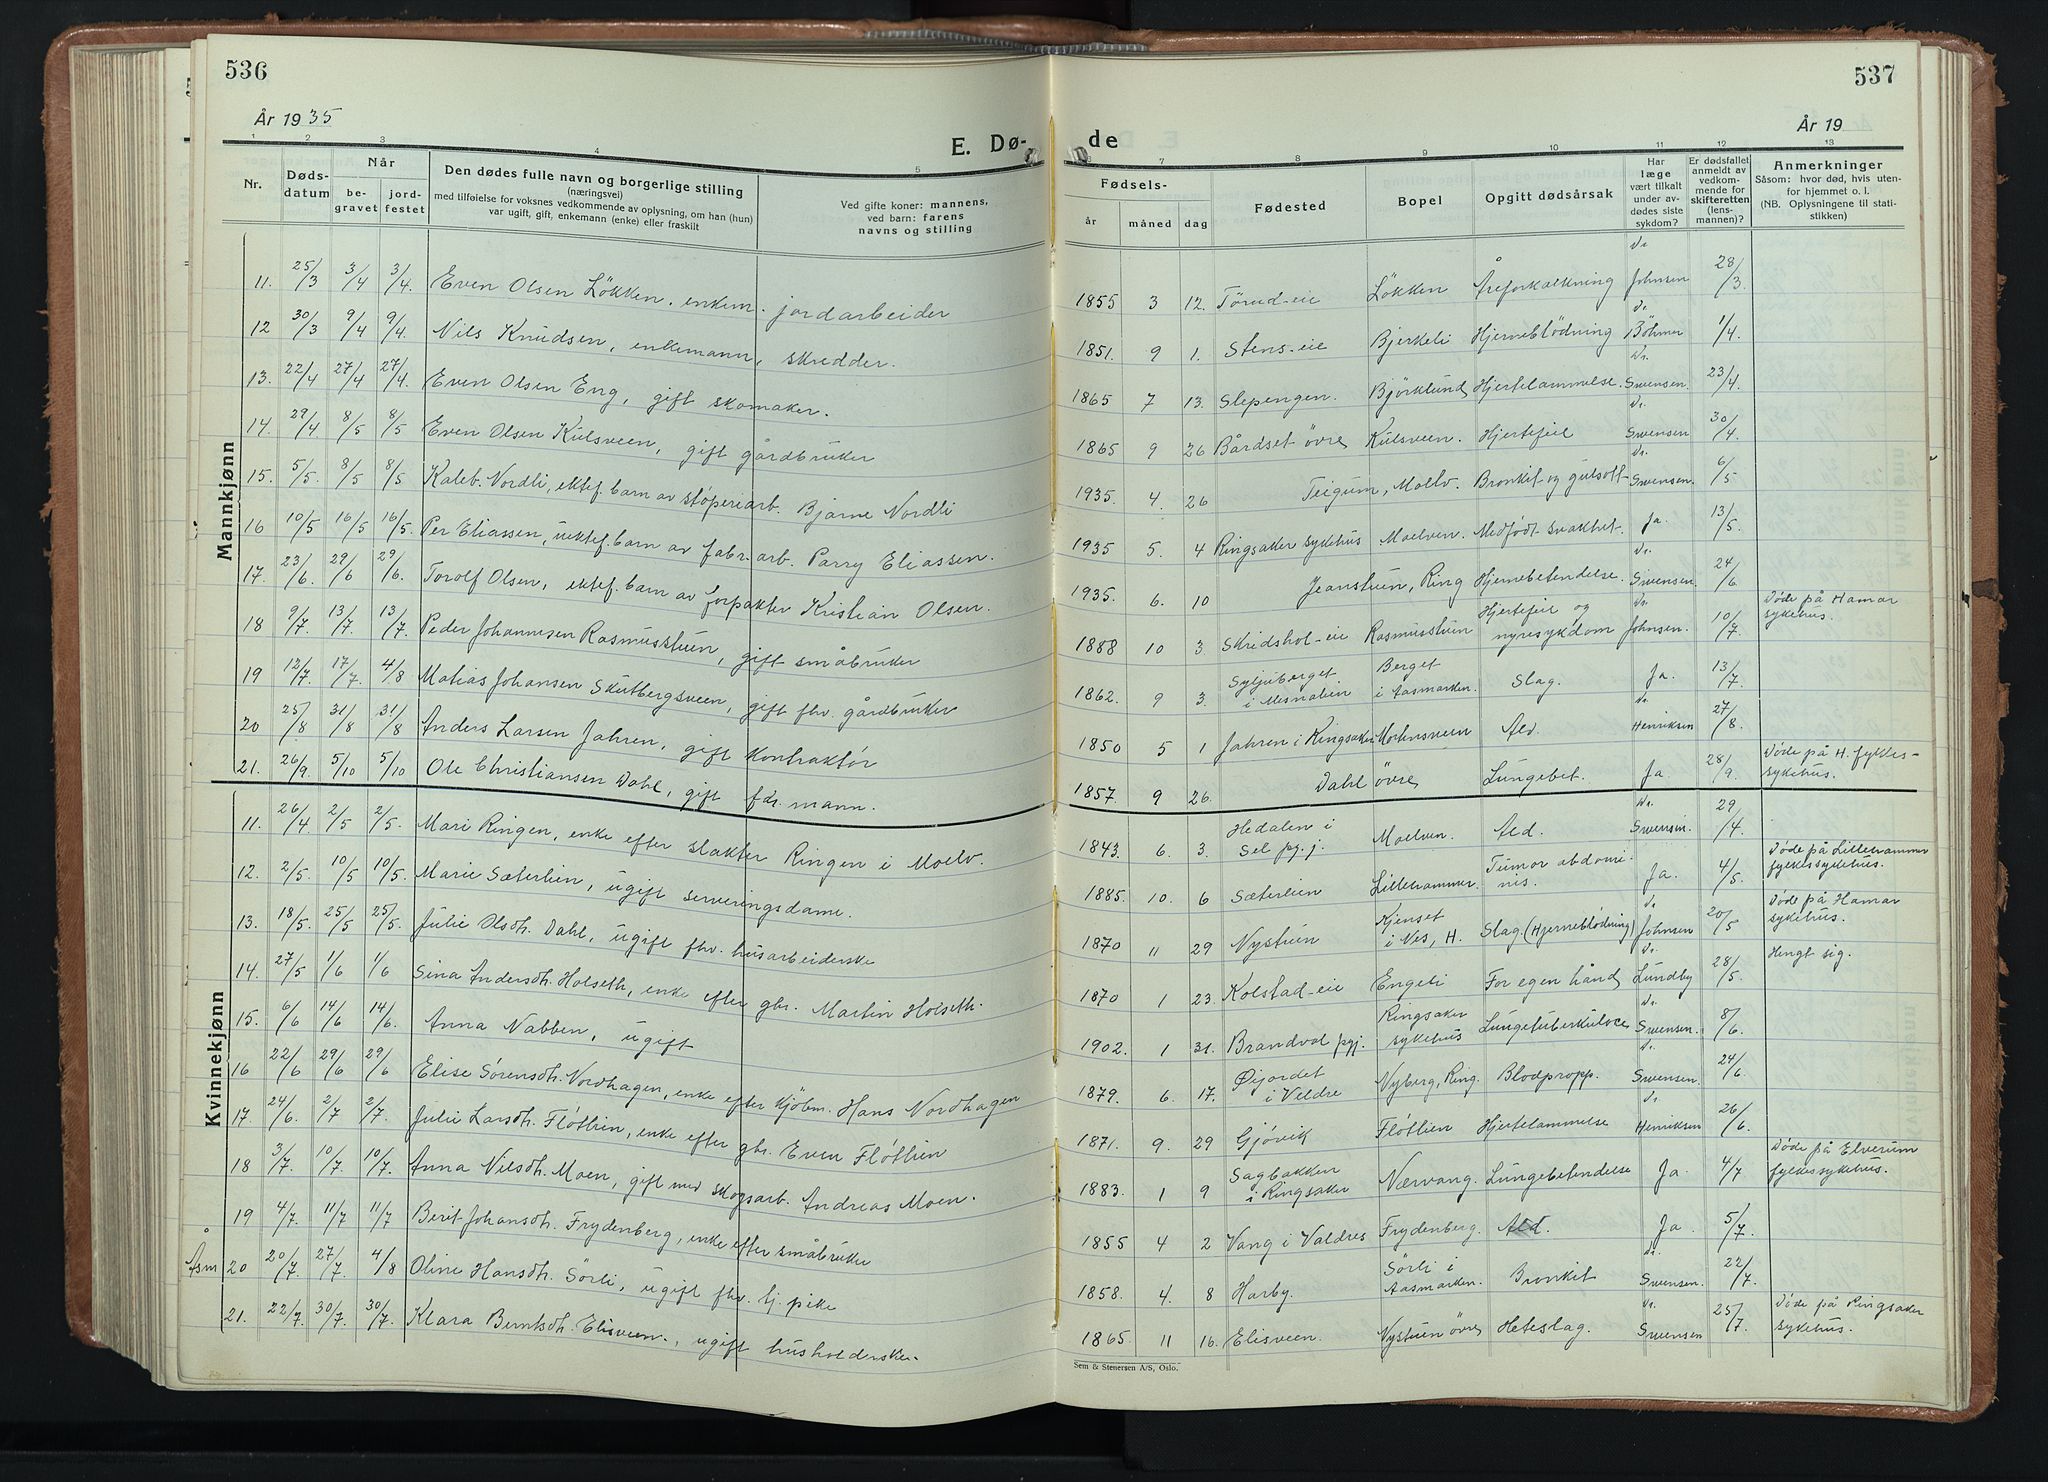 536
År 1935
E. Dø-
1 2 3 4 5
Nr.
Døds-
datum
Når
be-
gravet
jord-
festet
Den dødes fulle navn og borgerlige stilling
(næringsvei)
med tilføielse for voksnes vedkommende av oplysning, om han (hun)
var ugift, gift, enkemann (enke) eller fraskilt
Ved gifte koner: mannens,
ved barn: farens
navns og stilling
Mannkjønn
11. 25/3 3/4 3/4. Even Olsen Løkken, enkem. jordarbeider
12 30/3 9/4 9/4. Nils Knudsen, enkemann, skredder.
13. 22/4 27/4 27/4. Even Olsen Eng, gift skomaker.
14. 29/4 8/5 8/5 Even Olsen Kulsveen, gift gårdbruker
15. 5/5. 8/5 8/5 Kaleb. Nordli, ektef. barn av støperiarb. Bjarne Nordli
16 10/5 16/5 16/5. Per Eliassen, uektef. barn av fabr.arb. Parry Eliassen.
17. 23/6 29/6 29/6. Torolf Olsen, ektef. barn av forpakter Kristian Olsen.
18 9/7. 13/7. 13/7 Peder Johannesen Rasmusstuen, gift småbruker
19 12/7. 17/7. 4/8 Matias Johansen Skutbergsveen, gift fhv. gårdbruker
20 25/8 31/8 31/8 Anders Larsen Jahren, gift kontraktør
21. 26/9. 5/10 5/10 Ole Christiansen Dahl, gift fdr.mann.
Kvinnekjønn
11. 26/4 2/5 2/5. Mari Ringen, enke efter slakter Ringen i Moelv.
12. 2/5 10/5 10/5. Marie Sæterlien, ugift serveringsdame.
13. 18/5 25/5 25/5 Julie Olsdtr. Dahl, ugift fhv. husarbeiderske
14. 27/5 1/6 1/6 Sina Andersdtr. Holseth, enke efter gbr. Martin Holseth.
15. 6/6 14/6 14/6. Anna Nabben, ugift
16 22/6 29/6 29/6 Elise Sørensdtr. Nordhagen, enke efter kjøbm. Hans Nordhagen
17. 24/6. 2/7 2/7. Julie Larsdtr. Fløtlien, enke efter gbr. Even Fløtlien
18 3/7 10/7 10/7. Anna Nilsdtr. Moen, gift med skogsarb. Andreas Moen.
19 4/7. 11/7 11/7 Berit Johansdtr. Frydenberg, enke efter småbruker
Åsm 20 20/7. 27/7. 4/8 Oline Hansdtr. Sørli, ugift fhv. tj.pike
21. 22/7. 30/7. 30/7 Klara Berntsdtr. Elisveen, ugift husholderske.
537
År 19
de
7 8 9 10 11 12 13
Fødsels-
år
måned
dag
Fødested
Bopel
Opgitt dødsårsak
Har
læge
vært tilkalt
under av-
dødes siste
sykdom?
Er dødsfallet
anmeldt av
vedkom-
mende for
skifteretten
(lens-
mannen)?
Anmerkninger
Såsom: hvor død, hvis uten-
for hjemmet o. l.
(NB. Oplysningene til stati-
stikken)
1855 3 12. Tørud-eie Løkken Åreforkalkning Dr. Johnsen 28/3.
1851. 9 1. Stens-eie Bjerkeli Hjerneblödning Dr. Böhmer 1/4.
1865 7 13. Slepengen. Bjørklund Hjertelammelse. Dr. Swensen. 23/4.
1865 9 26 Bårdset øvre Kulsveen. Hjertefeil Dr. Swensen 30/4.
1935. 4. 26 Teigum, Moelv. Bronkit og gulsott Dr. Swensen. 6/5
1935 5. 4 Ringsaker sykehus Moelven. Medfödt svakhet. Ja. 13/5.
1935. 6. 10 Jeanstuen, Ring Hjernebetendelse. Dr. Swensen. 24/6
1888 10 3. Skridshol-eie Rasmusstuen Hjertefeil og nyresykdom Dr. Johnsen. 10/7. Døde på Hamar sykehus.
1862. 9 3. Syljuberget i Mesnalien Berget i Aasmarken. Slag. Ja. 13/7.
1850 5 1 Jahren i Ringsaker Ald. Dr. Henriksen 27/8.
1857. 9 26. Dahl øvre Lungebet. Ja 28/9. Døde på H. fylkes-
sykehus.
1843. 6. 3. Hedalen i Sel pgj. Moelven. Ald. Dr. Swensen. 29/4.
1885. 10. 6 Sæterlien Lillehammer. Tumor abdomi-
nis. Ja. 4/5. Døde på Lillehammer fylkessykehus.
1870 11 29 Nystuen Kjenset i Ves, H. Slag. (Hjerneblödning) Dr. Johnsen 20/5 Døde på Hamar sykehus.
1870 1 23. Kolstad-eie Engeli For egen hånd Dr. Lundby 28/5. Hengt sig.
1902. 1 31. Brandvol pgj. Ringsaker sykehus Lungetuberkulose Dr. Swensen. 8/6.
1879. 6. 17. Øijordet i Veldre Nyberg, Ring. Blodpropp. Dr. Swensen. 24/6.
1871. 9. 29 Gjøvik Fløtlien Hjertelammelse Dr. Henriksen 26/6.
1883. 1 9 Sagbakken i Ringsaker Nærvang. Lungebetendelse Ja. 4/7 Døde på Elverum fylkessykehus.
1855 4 2 Vang i Valdres Frydenberg. Ald. Ja. 5/7.
1858. 4. 8 Harby. Sørli i Aasmarken. Bronkit Dr. Swensen. 22/7.
1865 11 16. Elisveen. Nystuen øvre Heteslag. Dr. Swensen 25/7. Døde på Ringsaker sykehus.
Sem & Stenersen A/S, Oslo.